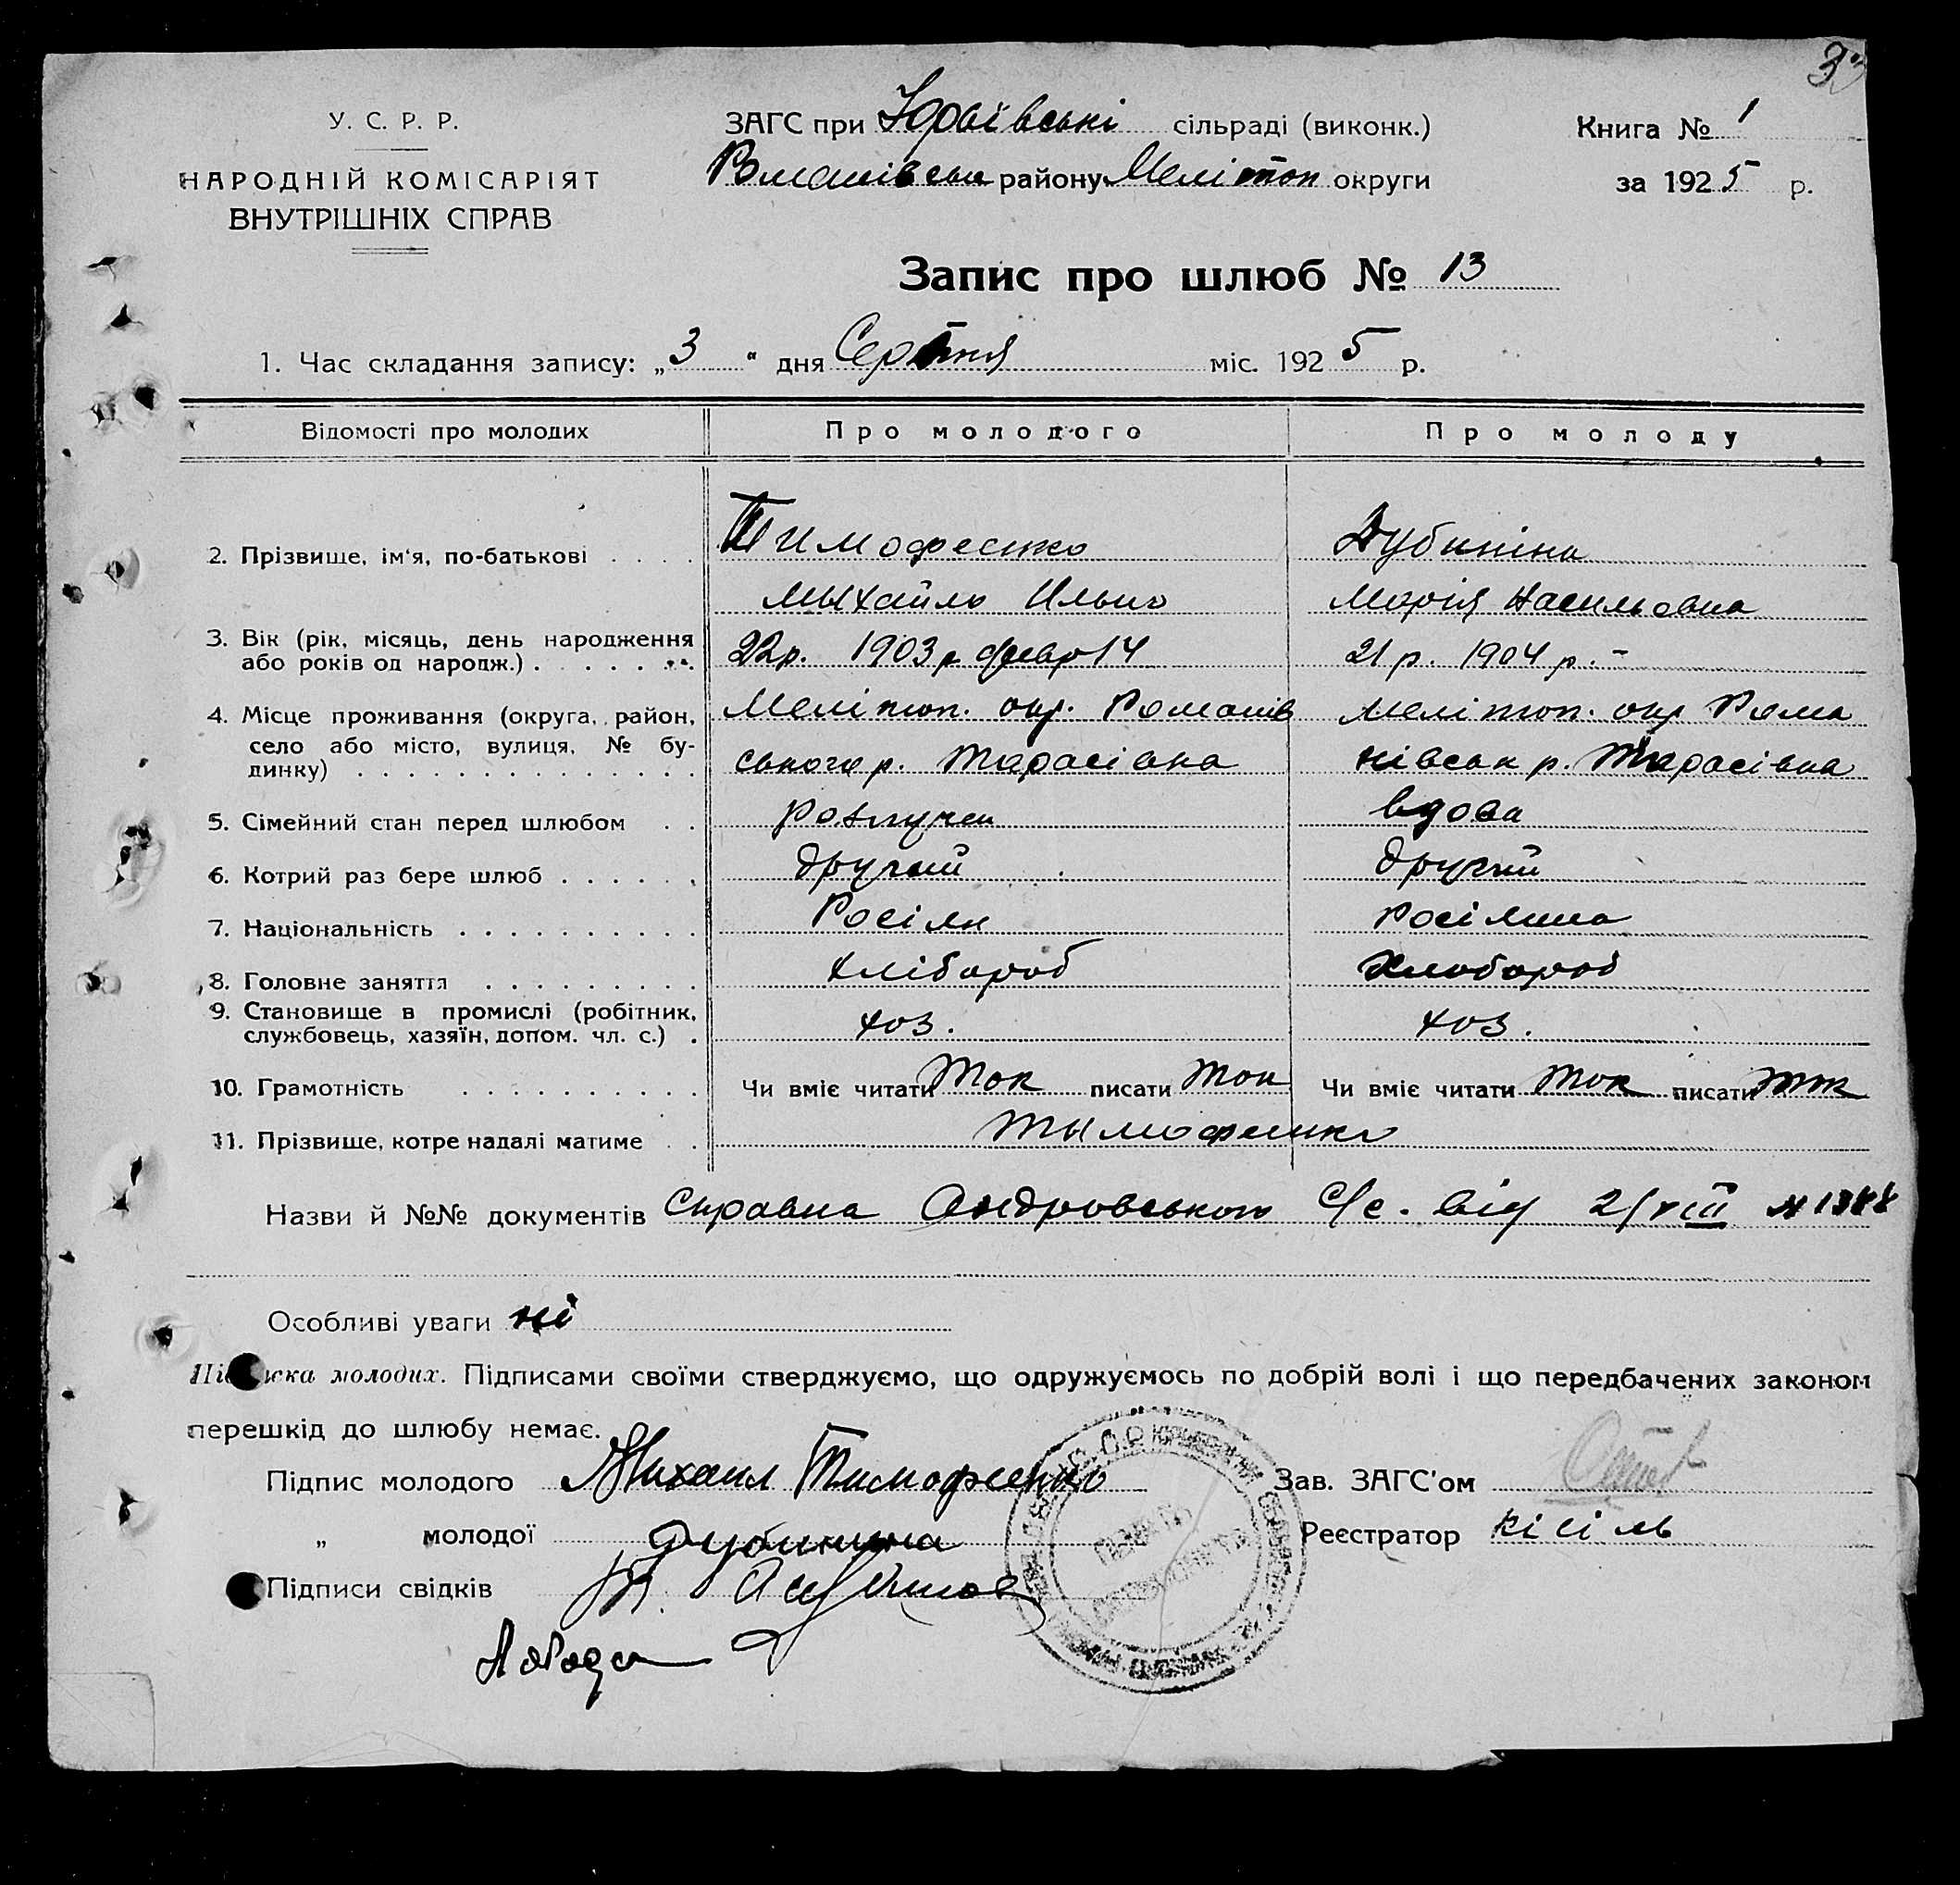 У. С. Р. Р.
НАРОДНІЙ КОМІСАРІЯТ
ВНУТРІШНІХ СПРАВ
ЗАГС при Юрʼївські сільраді (виконк.)
Романівськ району Мелітоп округи
Книга № 1
за 1925 р.
Запис про шлюб № 13
1. Час складання запису: „3" дня Серпня міс. 1925 р.
Відомості про молодих Про молодого Про молоду
2. Прізвище, ім'я, по-батькові . . . . Тимофеенко Дубініна
Мыхайло Ильич Марія
3. Вік (рік, місяць, день народження
або років од народж.) . . . . . . . . 22 р. 1903 р. февр 14 21 р. 1904 р. –
4. Місце проживання (округа, район,
село або місто, вулиця, № бу-
динку) . . . . . . . . . . . . . .
Мелітоп. окр. Романів Мелітоп. окр Рома
ського р. Тарасівка нівськ р. Тарасівка
5. Сімейний стан перед шлюбом . . розлучен вдова
6. Котрий раз бере шлюб . . . . . . другий другий
7. Національність . . . . . . . . . . Росіян росіянка
8. Головне заняття . . . . . . . . . хлібороб хлобороб
9. Становище в промислі (робітник,
службовець, хазяїн, допом. чл. с.) . хоз. хоз.
10. Грамотність . . . . . . . . . . Чи вміє читати так писати так Чи вміє читати так писати так
11. Прізвище, котре надалі матиме . . Тымофеенко
Назви й №№ документів Справка С/с. від 2/VIII № 1388
Особливі уваги ні
молодих. Підписами своїми стверджуємо, що одружуємось по добрій волі і що передбачених законом
перешкід до шлюбу немає.
Підпис молодого Михаил Тимофеенко Зав. ЗАГС'ом
„ молодої Дубинина Реєстратор Кісіль
Підписи свідків
Лобода